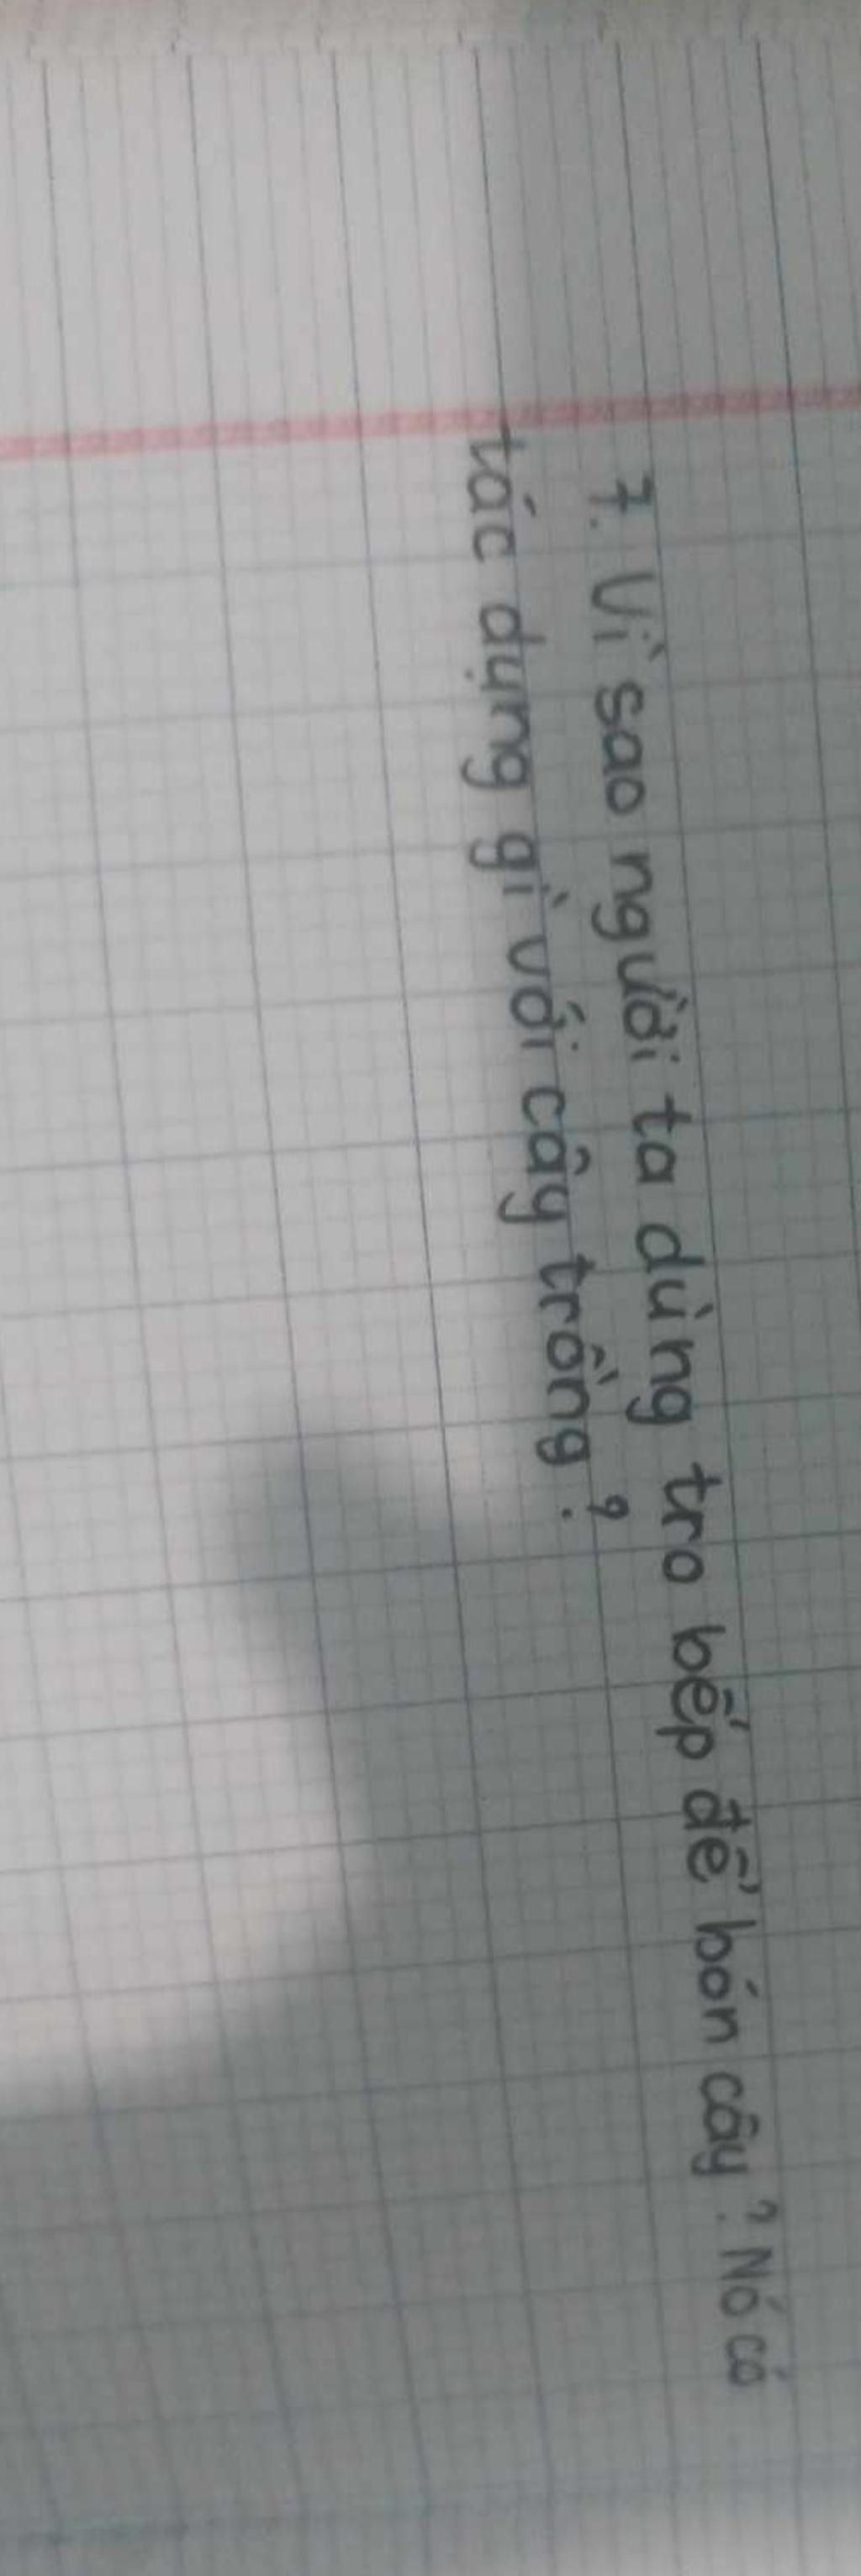 7. Vì sao người ta dùng tro bếp để bón cây? Nó có
tác dụng gì với cây trồng?